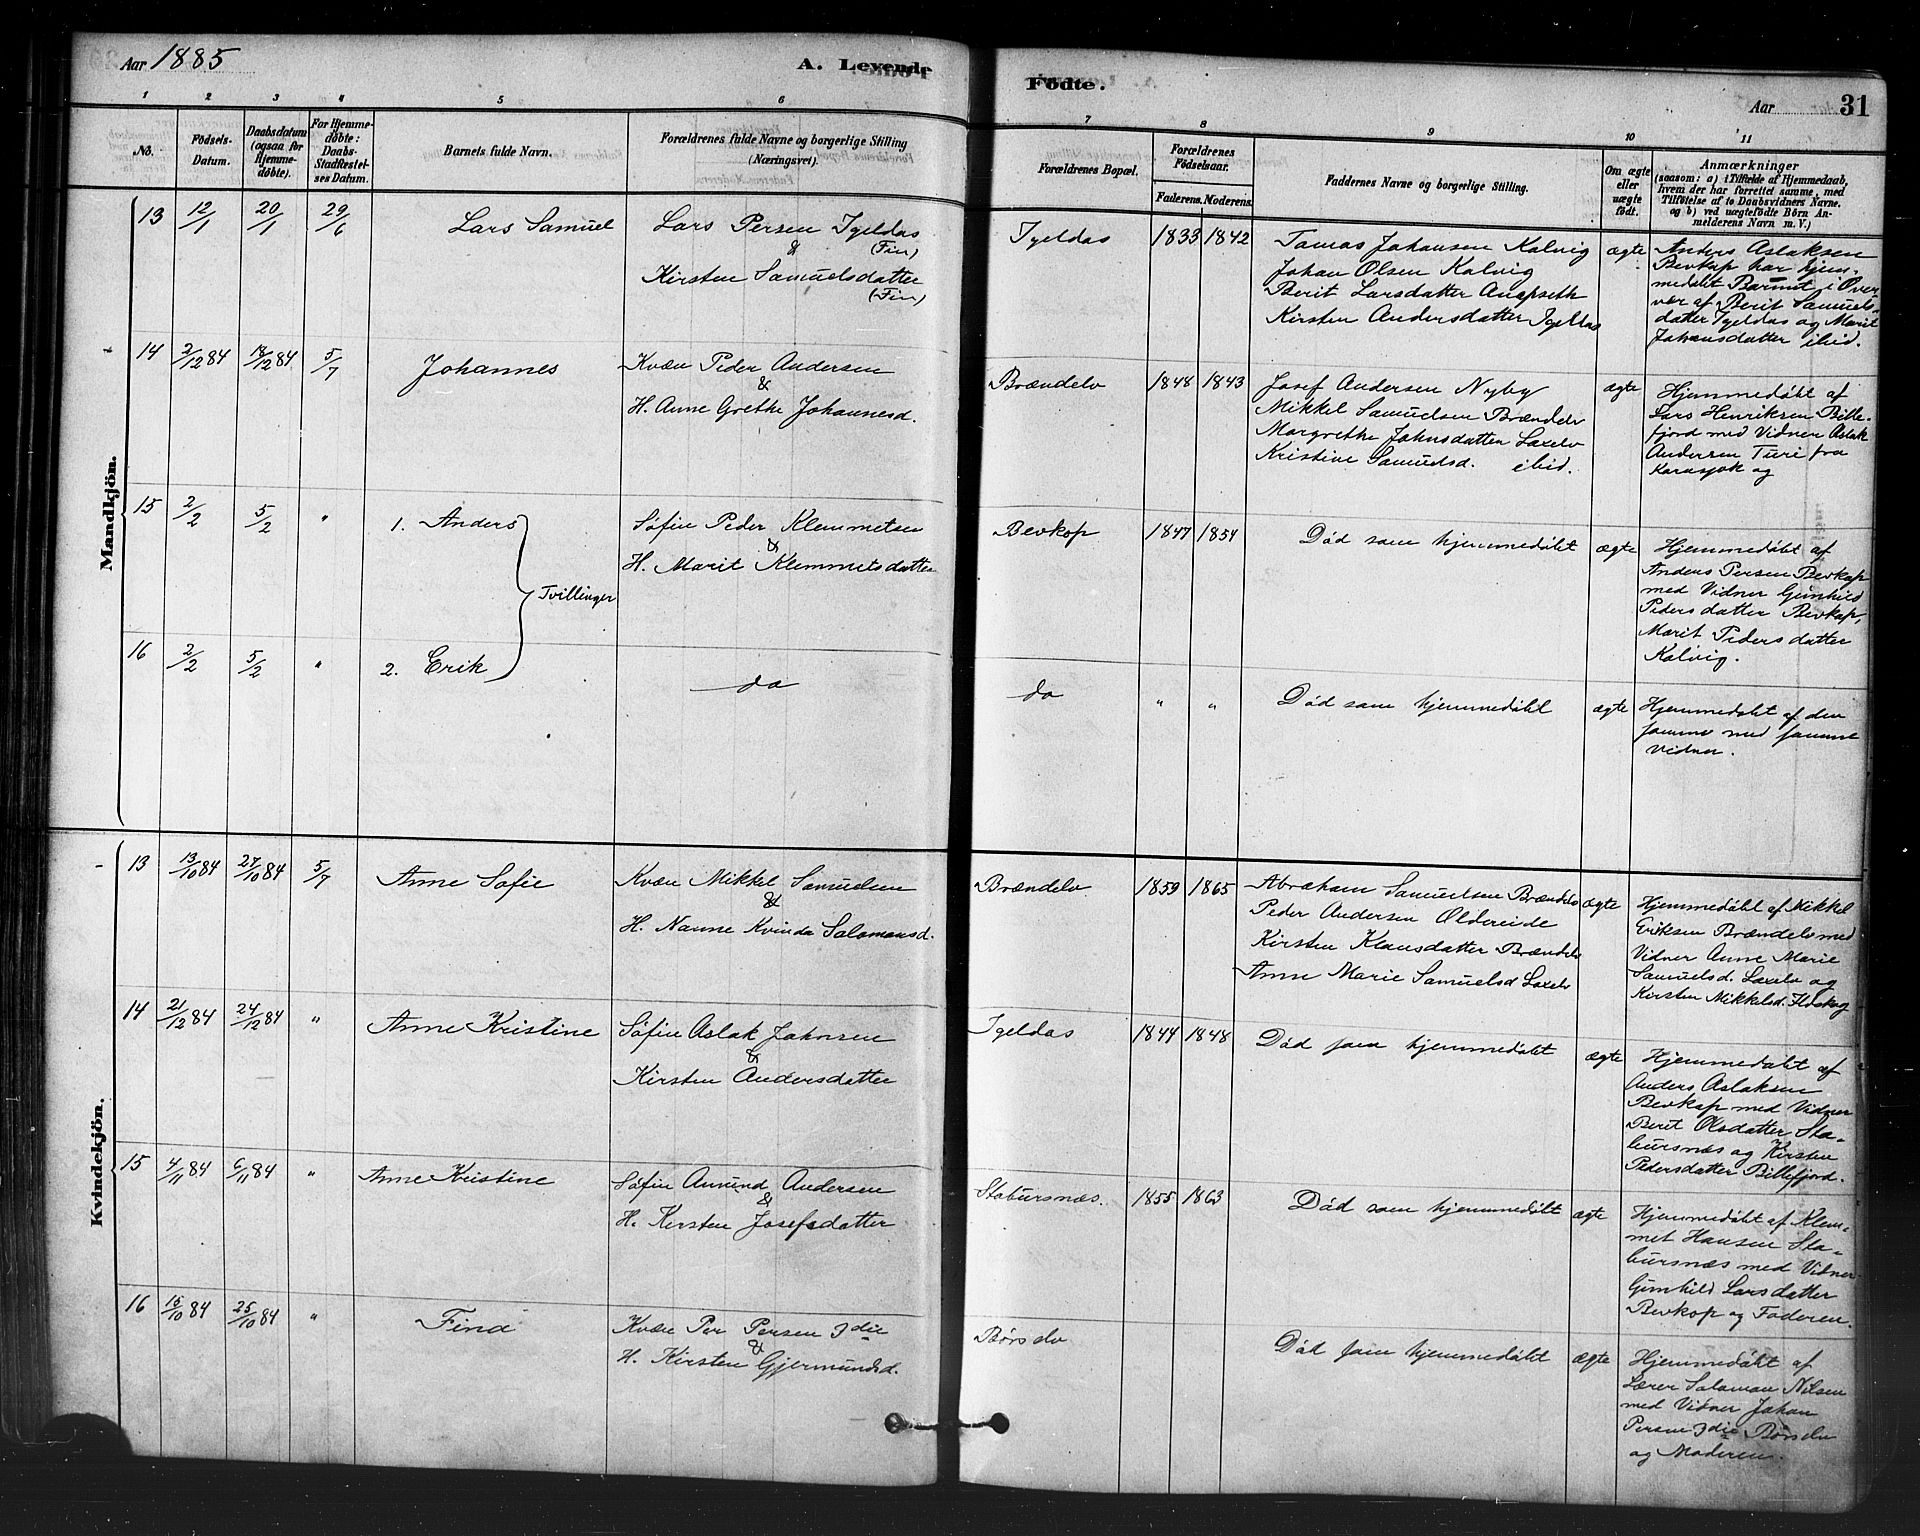 Aar 1885
A. Levende
Födte.
Aar
31
1 2 3 4 5 6 7 8 9 10 11
No.
Födsels-
Datum.
Daabsdatum
(ogsaa for
Hjemme-
døbte).
For Hjemme-
døbte:
Daabs-
Stadfæstel-
ses Datum.
Barnets fulde Navn.
Forældrenes fulde Navne og borgerlige Stilling
(Næringsvei).
Forældrenes Bopæl.
Forældrenes
Födselsaar.
Faderens. Moderens.
Faddernes Navne og borgerlige Stilling.
Om ægte
eller
uægte
født.
Anmærkninger
(saasom: a) i Tilfælde af Hjemmedaab,
hvem der har forrettet samme, med
Tilföielse af to Daabsvidners Navne.
og b) ved uægtefödte Börn An-
melderens Navn m. V.)
Mandkjön.
13 12/1 20/1 29/6 Lars Samuel
Lars Persen Igeldas
(Fin)
&
Kirsten Samuelsdatter
(Fin)
Igeldas 1833 1842
Tomas Johansen Kolvig
Johan Olsen Kolvig
Berit Larsdatter
Kirsten Andersdatter Igeldas
ægte
Anders Aslaksen
Bevkop har hjem-
medøbt Barnet i Over-
vær af Berit Samuels-
datter Igeldas og Marit
Johansdatter ibid.
14 2/12 84 14/12 84 5/7 Johannes
Kvæn Peder Andersen
&
H. Anne Grethe Johannesd.
Brændelv 1848 1843
Josef Andersen Nyby
Mikkel Samuelsen Brændelv
Margrethe Johnsdatter Laxelv
Kristine Samuelsd. ibid.
ægte
Hjemmedøbt af
Lars Henriksen Bille-
fjord med Vidner Aslak
Andersen Turi fra
Karasjok og
15 2/2 5/2 " 1. Anders
Tvillinger
Søfin Peder Klemmetsen
&
H. Marit Klemmetsdatter
Bevkop 1847 1854
Død som hjemmedøbt
ægte
Hjemmedøbt af
Anders Persen Bevkop
med Vidner Gunhild
Pedersdatter Bevkop,
Marit Pedersdatter
Kolvig.
16 2/2 5/2 " 2. Erik
do
do " "
Død som hjemmedøbt
ægte
Hjemmedøbt af den
samme med samme
Vidner.
Kvindekjön.
13 13/10 84 27/10 84 5/7 Anne Sofie
Kvæn Mikkel Samuelsen
&
H. Nanne Kvinda Salamonsd.
Brændelv 1859 1865
Abraham Samuelsen Brændelv
Peder Andersen Oldereide
Kirsten Klausdatter Brændelv
Anne Marie Samuelsd Laxelv
ægte
Hjemmedøbt af Mikkel
Eriksen Brændelv med
Vidner Anne Marie
Samuelsd. Laxelv og
Kirsten Mikkelsd.
14 21/12 84 24/12 84 " Anne Kristine
Søfin Aslak Johnsen
&
Kirsten Andersdatter
Igeldas 1844 1848
Død som hjemmedøbt
ægte
Hjemmedøbt af
Anders Aslaksen
Bevkop med Vidner
Berit Olsdatter Sta-
bursnæs og Kirsten
Pedersdatter Billefjord.
15 4/11 84 6/11 84 " Anne Kristine
Søfin Amund Andersen
&
H. Kirsten Josefsdatter
Stabursnæs. 1855 1863
Død som hjemmedøbt
ægte
Hjemmedøbt af Klem-
met Hansen Sta-
bursnæs med Vidner
Gunhild Larsdatter
Bevkop og Faderen.
16 15/10 84 25/10 84 " Fina
Kvæn Per Persen 3die
&
H. Kirsten Gjermundsd.
Børselv
Død som hjemmedøbt
ægte
Hjemmedøbt af
Lærer Salamon Nilsen
med Vidner Johan
Persen 3die Børselv
og Moderen.